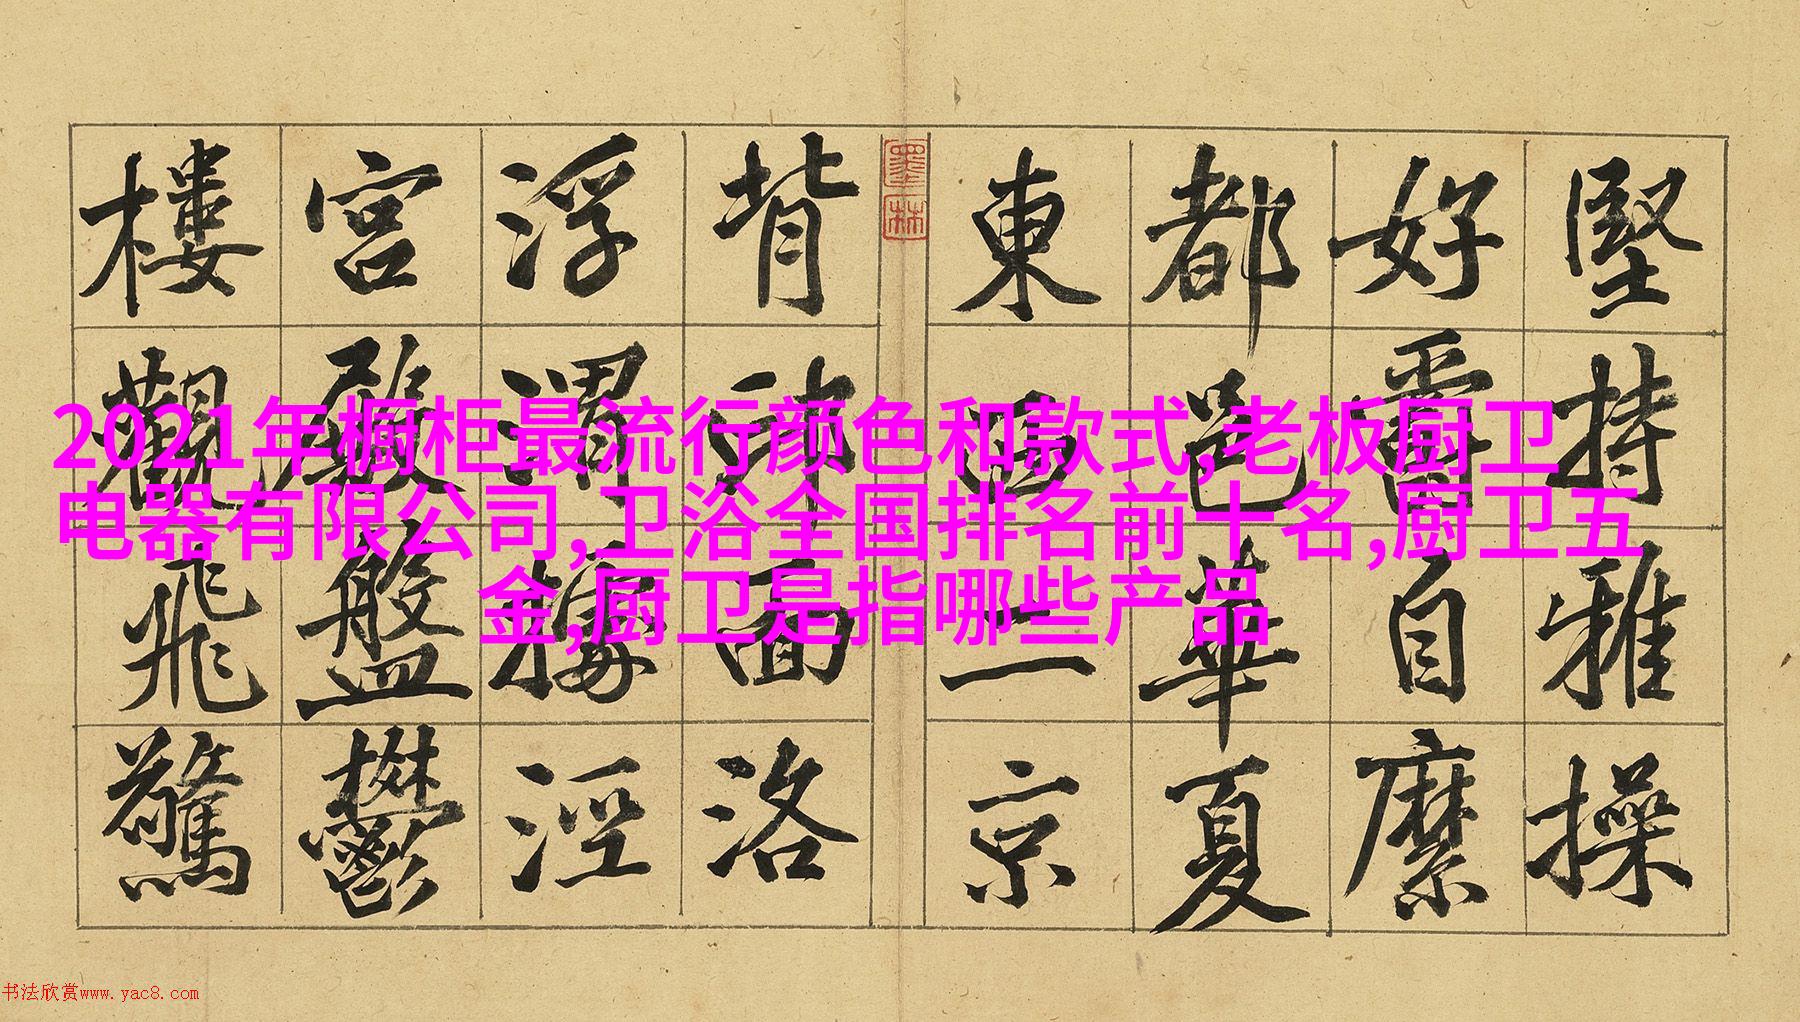 堅持雅操
好爵自縻
都邑華夏
東西二京
墨林
背邙面洛
浮渭據涇
宮殿盤鬱
樓觀飛驚
2021年橱柜最流行颜色和款式,老板厨卫
电器有限公司,卫浴全国排名前十名,厨卫五
金,厨卫是指哪些产品
书法欣赏www.yac8.com